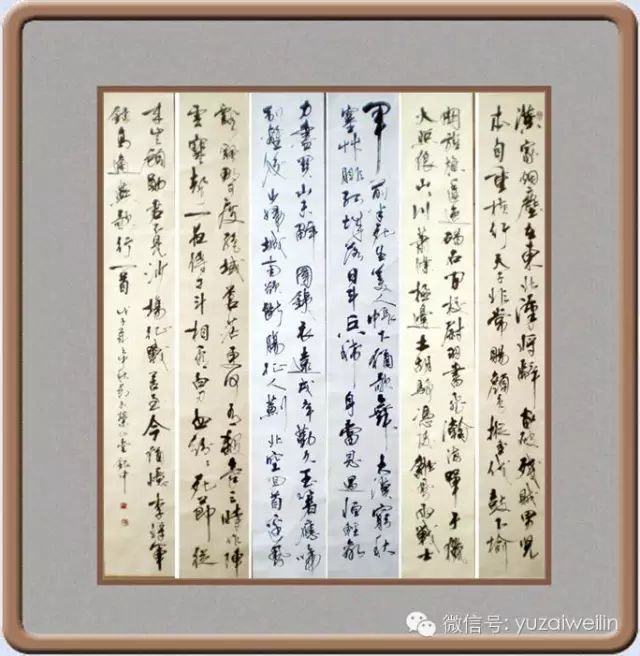 漢家烟塵在東北漢將辭家破殘賊男兒
本自重橫行天子非常賜顏色摐金伐鼓下榆
關旌旆逶迤碣石間校尉羽書飛瀚海單于獵
火照狼山山川蕭條極邊土胡騎憑陵雜風雨戰士
軍前半死生美人帳下猶歌舞大漠窮秋
塞艸腓孤城落日鬥兵稀身當恩遇恒輕敵
力盡關山未解圍鐵衣遠戍辛勤久玉箸應啼
別離後少婦城南欲斷腸征人薊北空回首邊風
飄飄那可度絕域蒼茫更何有殺氣三時作陣
雲寒聲一夜傳刁斗相看白刃血紛紛死節從
來豈顧勳君不見沙場征戰苦至今猶憶李將軍
錄高適燕歌行一首 戊子年
微信号: yuzaiweilin